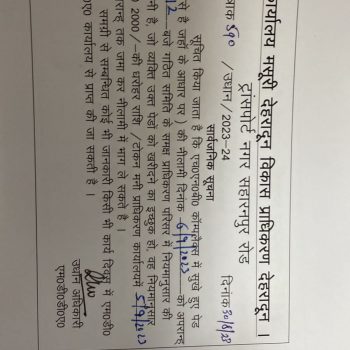 कार्यालय मसूरी देहरादून विकास प्राधिकरण देहरादून ।
ट्रांसपोर्ट नगर सहारनपुर रोड
त्रांक 590 / उधान / 2023-24 दिनांक 30/8/23
सार्वजनिक सूचना
सूचित किया जाता है कि एच0एन0बी कॉम्पलैक्स में सूखे हुए पेड
से है जहाँ के आधार पर ) की नीलामी दिनांक 6/9/2023 को अपरान्ह
12 बजे गठित समिति के समक्ष प्राधिकरण परिसर में नियमानुसार की
नी है, जो व्यक्ति उक्त पेडों को खरीदने का इच्छुक हो, वह नियमानुसार
0 2000 /-की धरोहर राशि / टोकन मनी प्राधिकरण कार्यालयमें 5/9/2023
रान्ह तक जमा कर नीलामी में भाग ले सकते है ।
समग्री से सम्बन्धित कोई भी जानकारी किसी भी कार्य दिवस में एम0डी0
0ए0 कार्यालय से प्राप्त की जा सकती है ।
उधान अधिकारी
एम0डी0डी0ए0